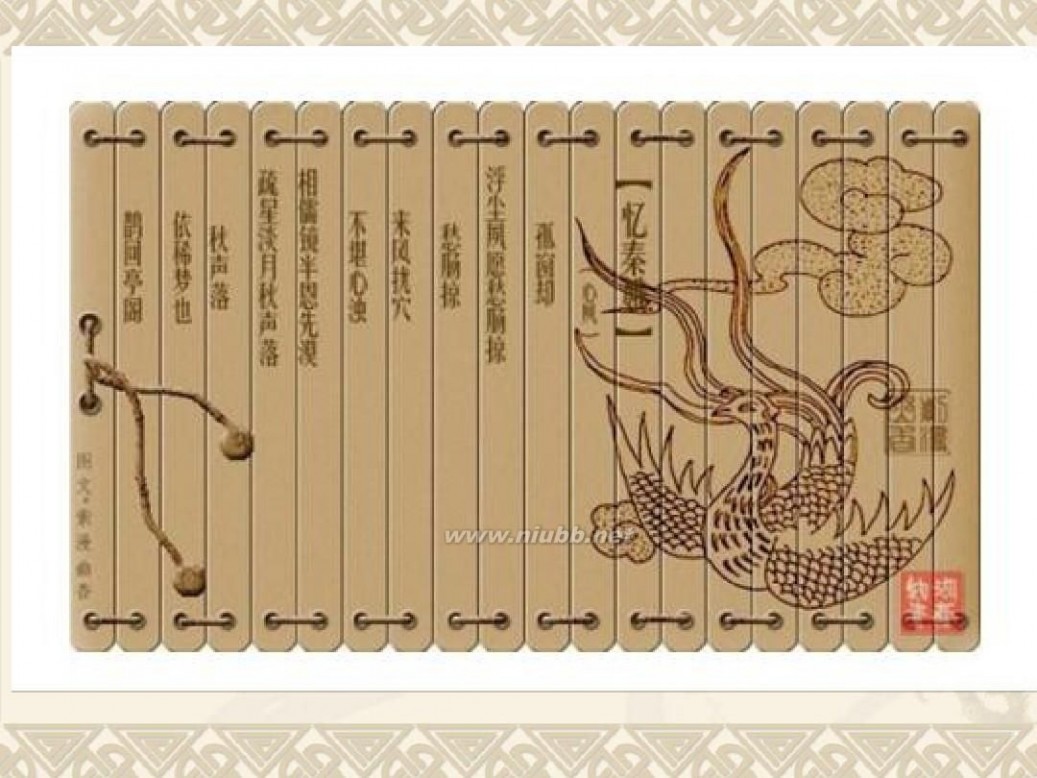 【忆秦娥】
孤窗却
浮尘夙愿愁肠掠
愁肠掠
来风找穴
不堪心浊
相儒镜半恩先漠
疏星淡月秋声落
秋声落
依稀梦也
鹊回亭阁
图文
www.niubb.net